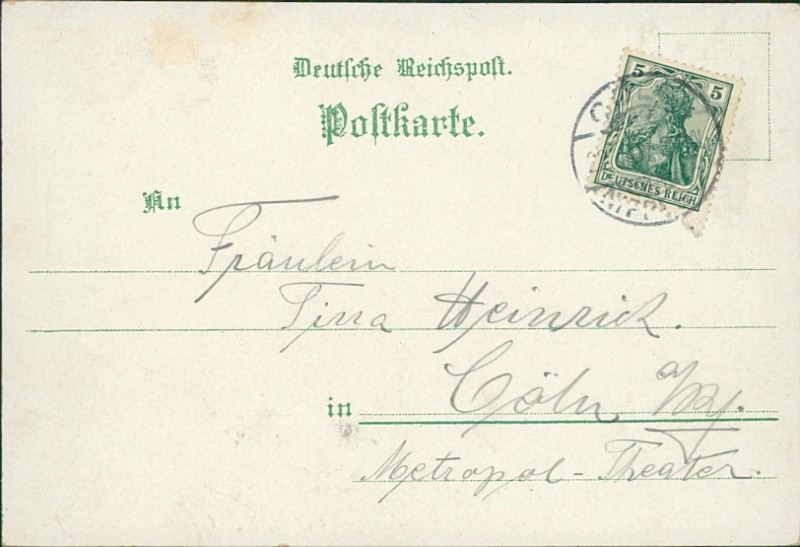 Deutsche Reichspost.
Postkarte.
5 5
DEUTSCHES REICH
An
Fräulein
Tirra Heinrich.
in Cöln a/Rh.
Metropol-Theater.